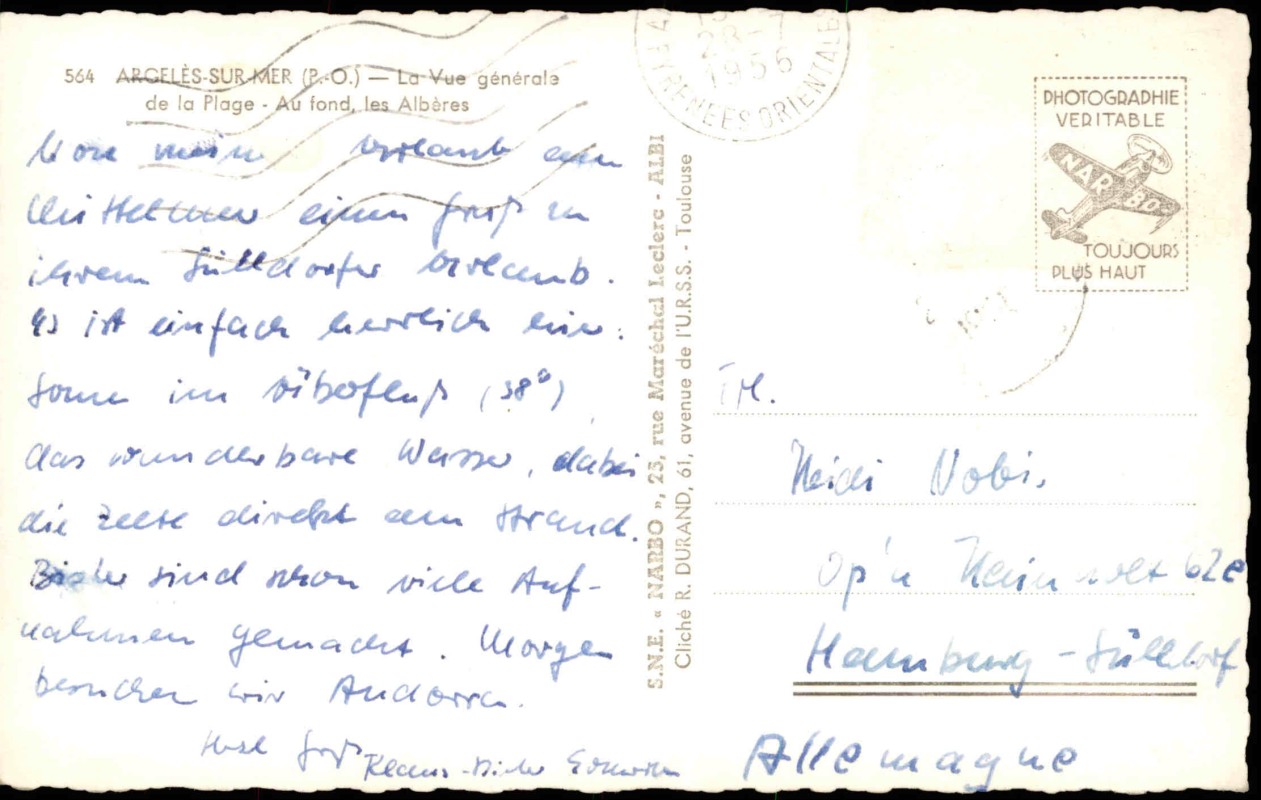 564 ARGELÈS-SUR-MER (P.-O.) — La Vue générale
de la Plage - Au fond, les Albères
Von mein Urlaub am
Mittelmeer einen Gruß zu
ihrem Sülldorfer Urlaub.
Es ist einfach herrlich hier:
Sonne im (38°)
das wunderbare Wasser, dabei
die Zelte direkt am Strand.
Bisher sind schon viele Auf-
nahmen gemacht. Morgen
besuchen wir Andorra.
Gruß Klaus-Dieter
S.N.E. « NARBO », 25, rue Maréchal Leclerc - ALBI
Cliché R. DURAND, 61, avenue de l'U.R.S.S. - Toulouse
28-7
1956
PYRENEES ORIENTALES
PHOTOGRAPHIE
VERITABLE
NARBO
TOUJOURS
PLUS HAUT
Heidi Nobi.
Op'n 62e
Hamburg-Sülldorf
Allemagne